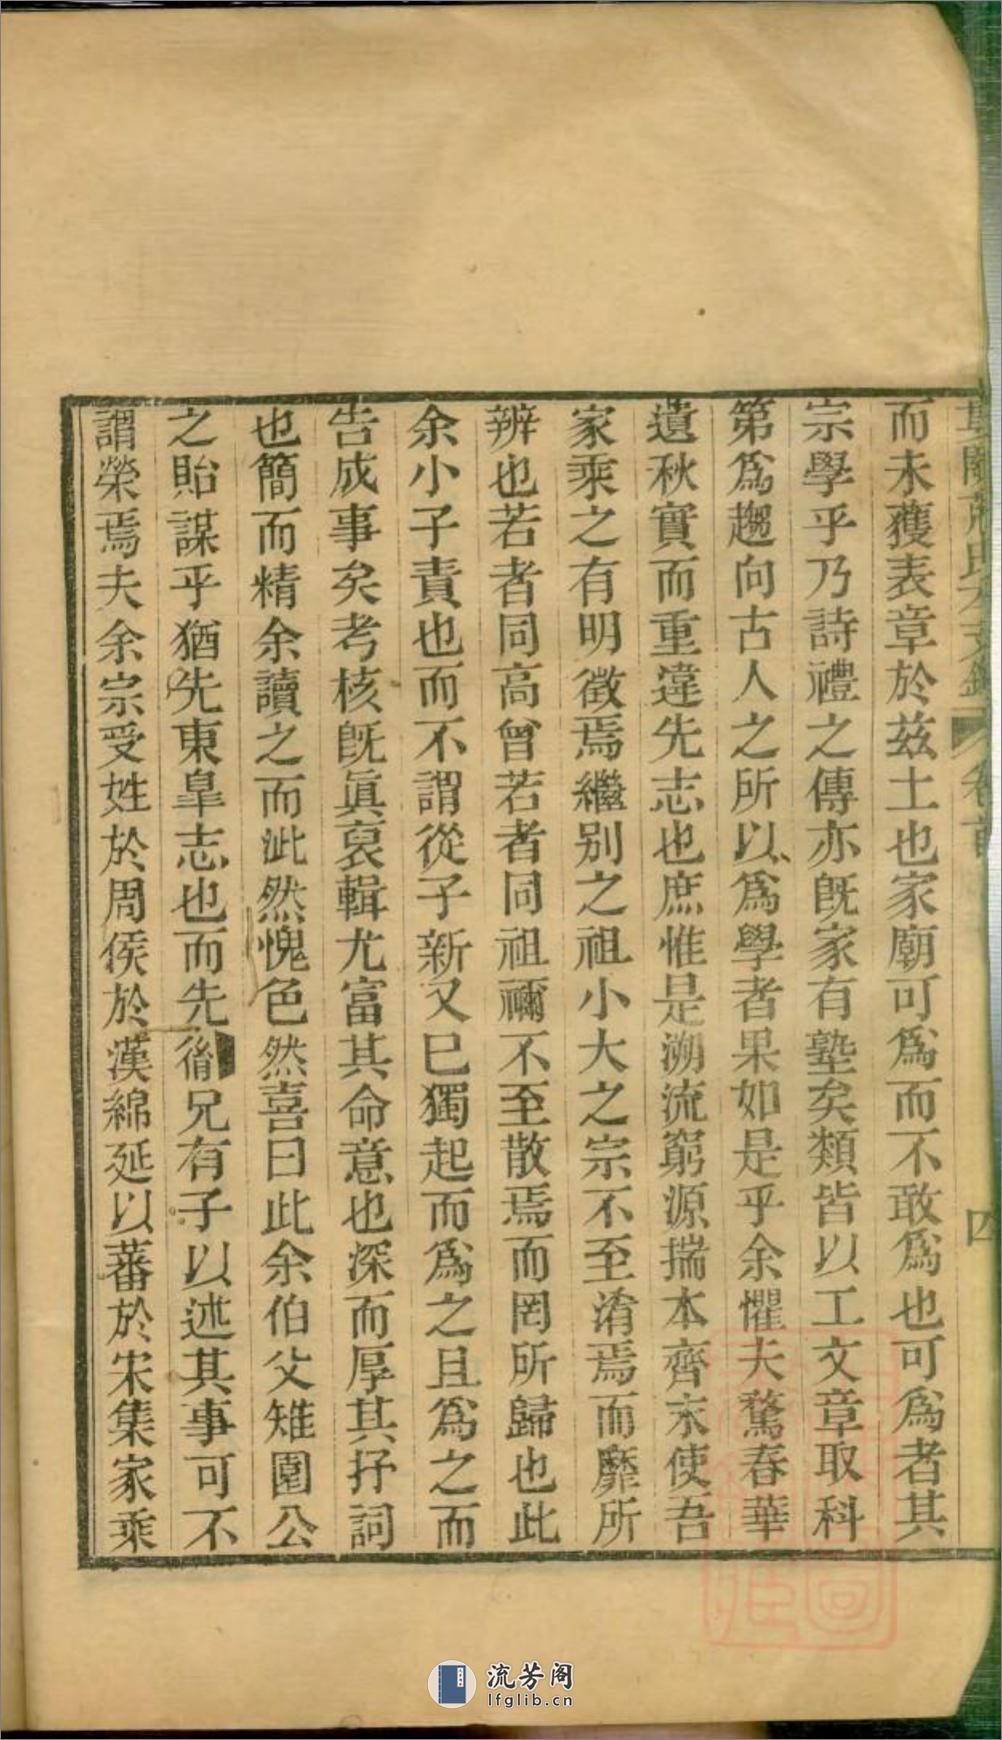 而未獲表章於茲土也家廟可爲而不敢爲也可爲者其
宗學乎乃詩禮之傳亦旣家有塾矣類皆以工文章取科
第爲趨向古人之所以爲學者果如是乎余懼夫騖春華
遺秋實而重違先志也庶惟是溯流窮源揣本齊末使吾
家乘之有明徵焉繼別之祖小大之宗不至淆焉而靡所
辨也若者同高曾若者同祖禰不至散焉而罔所歸也此
余小子責也而不謂從子新又巳獨起而爲之且爲之而
告成事矣考核旣眞裒輯尤富其命意也深而厚其抒詞
也簡而精余讀之而泚然愧色然喜曰此余伯父雉園公
之貽謀乎猶先東臯志也而先脊兄有子以述其事可不
謂榮焉夫余宗受姓於周侯於漢綿延以蕃於宋集家乘
卷首
四
流芳阁
lfglib.cn